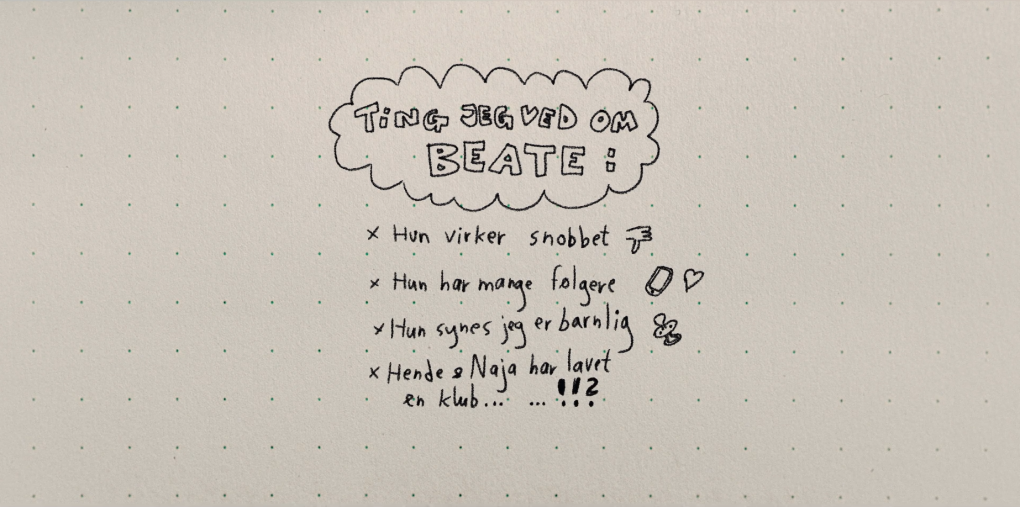 TiNG JEG VED OM
BEATE :
x Hun virker snobbet
x Hun har mange følgere
x Hun synes jeg er barnlig
x Hende & Naja har lavet
en klub... ... !!?